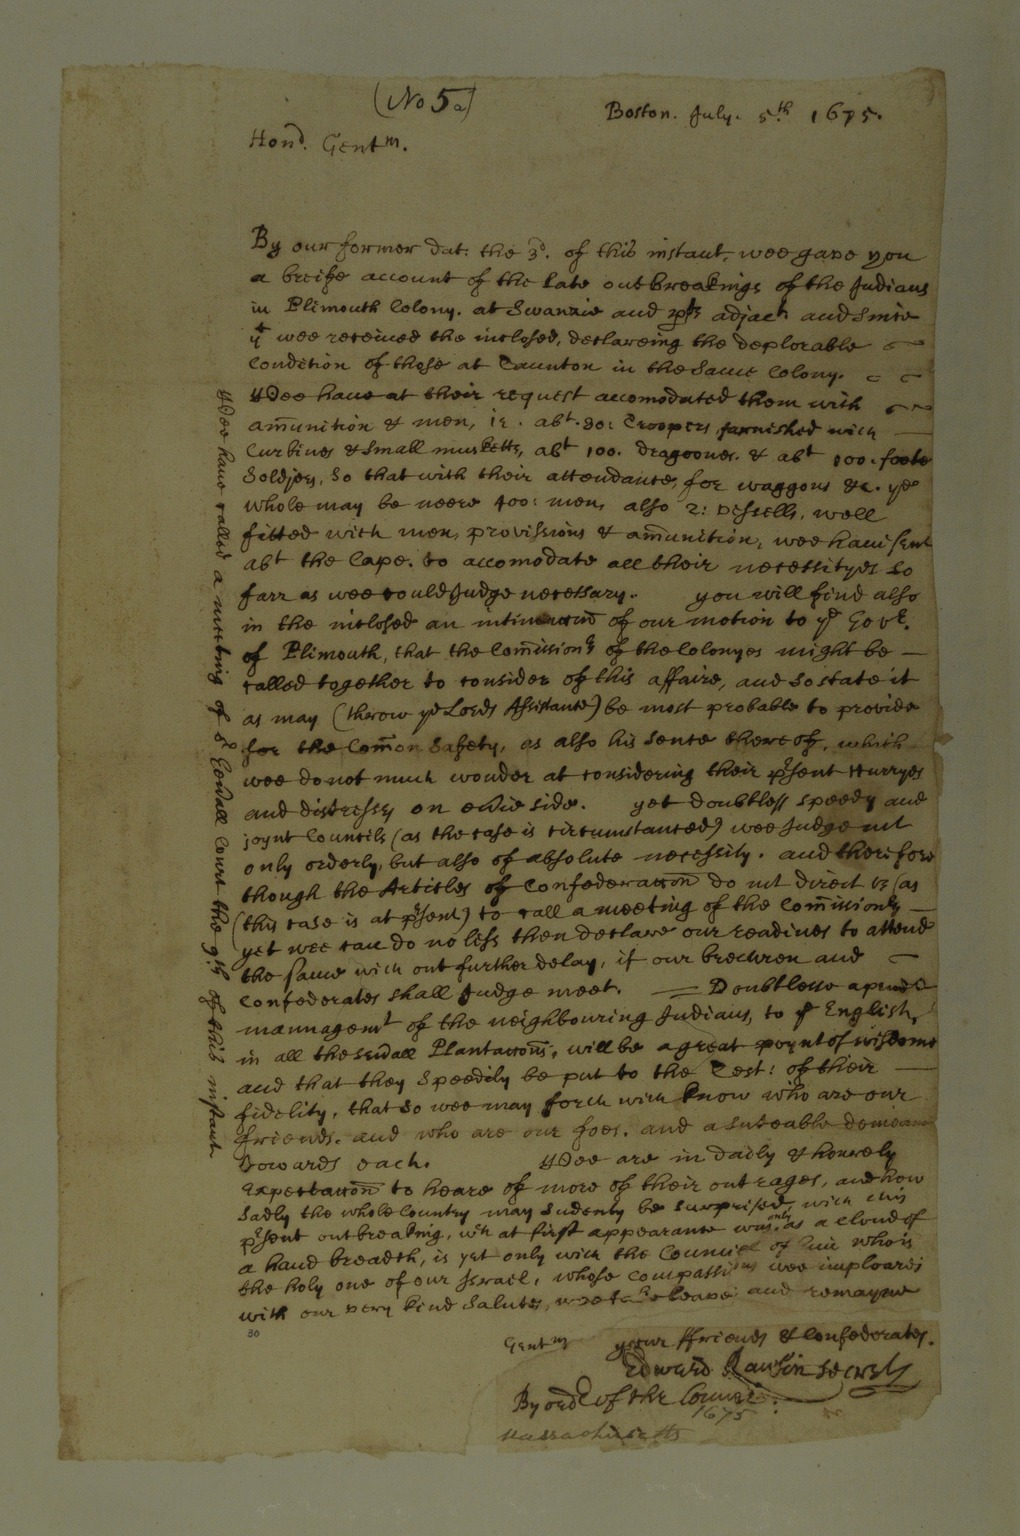 (No 5a)
Boston. July. 5.th 1675.
Hond. Gentm.
By our former dat: the 3d. of this instant, wee gave you
a breife account of the late outbreakings of the Indians
in Plimouth Colony. at Swanzie and pts adjact and since
yt wee received the inclosed, declareing the deplorable
Condition of those at Taunton in the same Colony.
Wee have at their request accomodated them with
amunition & men, ie. abt. 80: Troopers furnished with
Curbines & small musketts, abt 100. dragoones. & abt 100. foote
Soldjers, so that with their attendants, for waggons &c. ye
whole may be neere 400: men, also 2: vessells, well
fitted with men, provissions & amunition, wee have sent
abt the Cape. to accomodate all their necessityes so
farr as wee could Judge necessary. you will find also
in the inclosed an intimation of our motion to ye Govr.
of Plimouth, that the Comissionrs of the Colonyes might be
called together to consider of this affaire, and so state it
as may (throw ye Lords Assistance) be most probable to provide
for the Comon Safety, as also his sence thereof, which
wee do not much wonder at considering their prsent Hurryes
and distresses on evrie side. yet doubtless speedy and
joynt Councils (as the case is circumstanced) wee Judge not
only orderly, but also of absolute necessity. and therefore
though the Articles of Confederation do not direct us (as
(this case is at prsent) to call a meeting of the Comissionrs
yet wee can do no less then declare our readines to attend
the same with out further delay, if our brethren and
Confederates shall Judge meet. Doubtlesse a prudt
mannagemt of the neighbouring Indians, to ye English,
in all the sevrall Plantations, will be a great poynt of wisdome
and that they speedily be put to the Test: of their
fidelity, that so wee may forth with know who are our
friends. and who are our foes. and a suteable demeanr
towards each. Wee are in daily & hourely
Expectation to heare of more of their outrages, and how
Sadly the whole Country may sudenly be surprised, with this
prsent outbreaking, wch at first appearance was only as a cloud of
a hand breadth, is yet only with the Council of him who is
the holy one of our Israel, whose compassions wee imploare;
with our very kind salutes, wee take leave and remayne
Gentm your ffriends & Confederates.
Edward Rawson Secrety
By ordr of the Council.
1675
Massachusetts
80
Wee have called a meeting of or Genrall Court the 9th of this instant